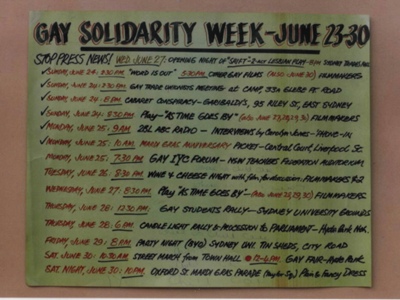 GAY SOLIDARITY WEEK - JUNE 23-30
STOP PRESS NEWS! WED JUNE 27: OPENING NIGHT OF "SHIFT" - 2 ACT LESBIAN PLAY - 8PM
✓SUNDAY, JUNE 24: 2:30 PM. "WORD IS OUT" 5:30PM. OTHER GAY FILMS (ALSO JUNE 30) FILMMAKERS
✓SUNDAY, JUNE 24: 2:30PM. GAY TRADE UNIONISTS MEETING AT CAMP, 33A GLEBE PT ROAD
✓SUNDAY, JUNE 24: 8PM CABARET CONSPIRACY - GARIBALDI'S, 95 RILEY ST, EAST SYDNEY
✓SUNDAY, JUNE 24: 8:30PM Play - "AS TIME GOES BY" (also JUNE 27,28,29,30) FILMMAKERS
✓MONDAY, JUNE 25: 9AM 2BL ABC RADIO - INTERVIEWS by Carolyn Jones - PHONE-IN
✓MONDAY, JUNE 25: 10AM. MARDI GRAS ANNIVERSARY: PICKET - Central Court, Liverpool St.
MONDAY, JUNE 25: 7:30 PM GAY IYC FORUM - NSW TEACHERS FEDERATION AUDITORIUM
TUESDAY, JUNE 26: 8:30 PM WINE & CHEESE NIGHT with film, for discussion: FILMMAKERS
WEDNESDAY, JUNE 27: 8:30PM Play "AS TIME GOES BY" - (also JUNE 28,29,30) FILMMAKERS
THURSDAY, JUNE 28: 12:30PM: GAY STUDENTS RALLY - SYDNEY UNIVERSITY GROUNDS
THURSDAY, JUNE 28: 6PM: CANDLE LIGHT RALLY & PROCESSION TO PARLIAMENT - Hyde Park Nth.
FRIDAY, JUNE 29: 8PM. PARTY NIGHT (BYO) SYDNEY UNI. TIN SHEDS, CITY ROAD
SAT. JUNE 30: 10:30AM STREET MARCH from TOWN HALL • 12-6PM. GAY FAIR - Hyde Park
SAT. NIGHT, JUNE 30: 10PM. OXFORD ST. MARDI GRAS PARADE (Taylor Sq.) Pain & Fancy Dress